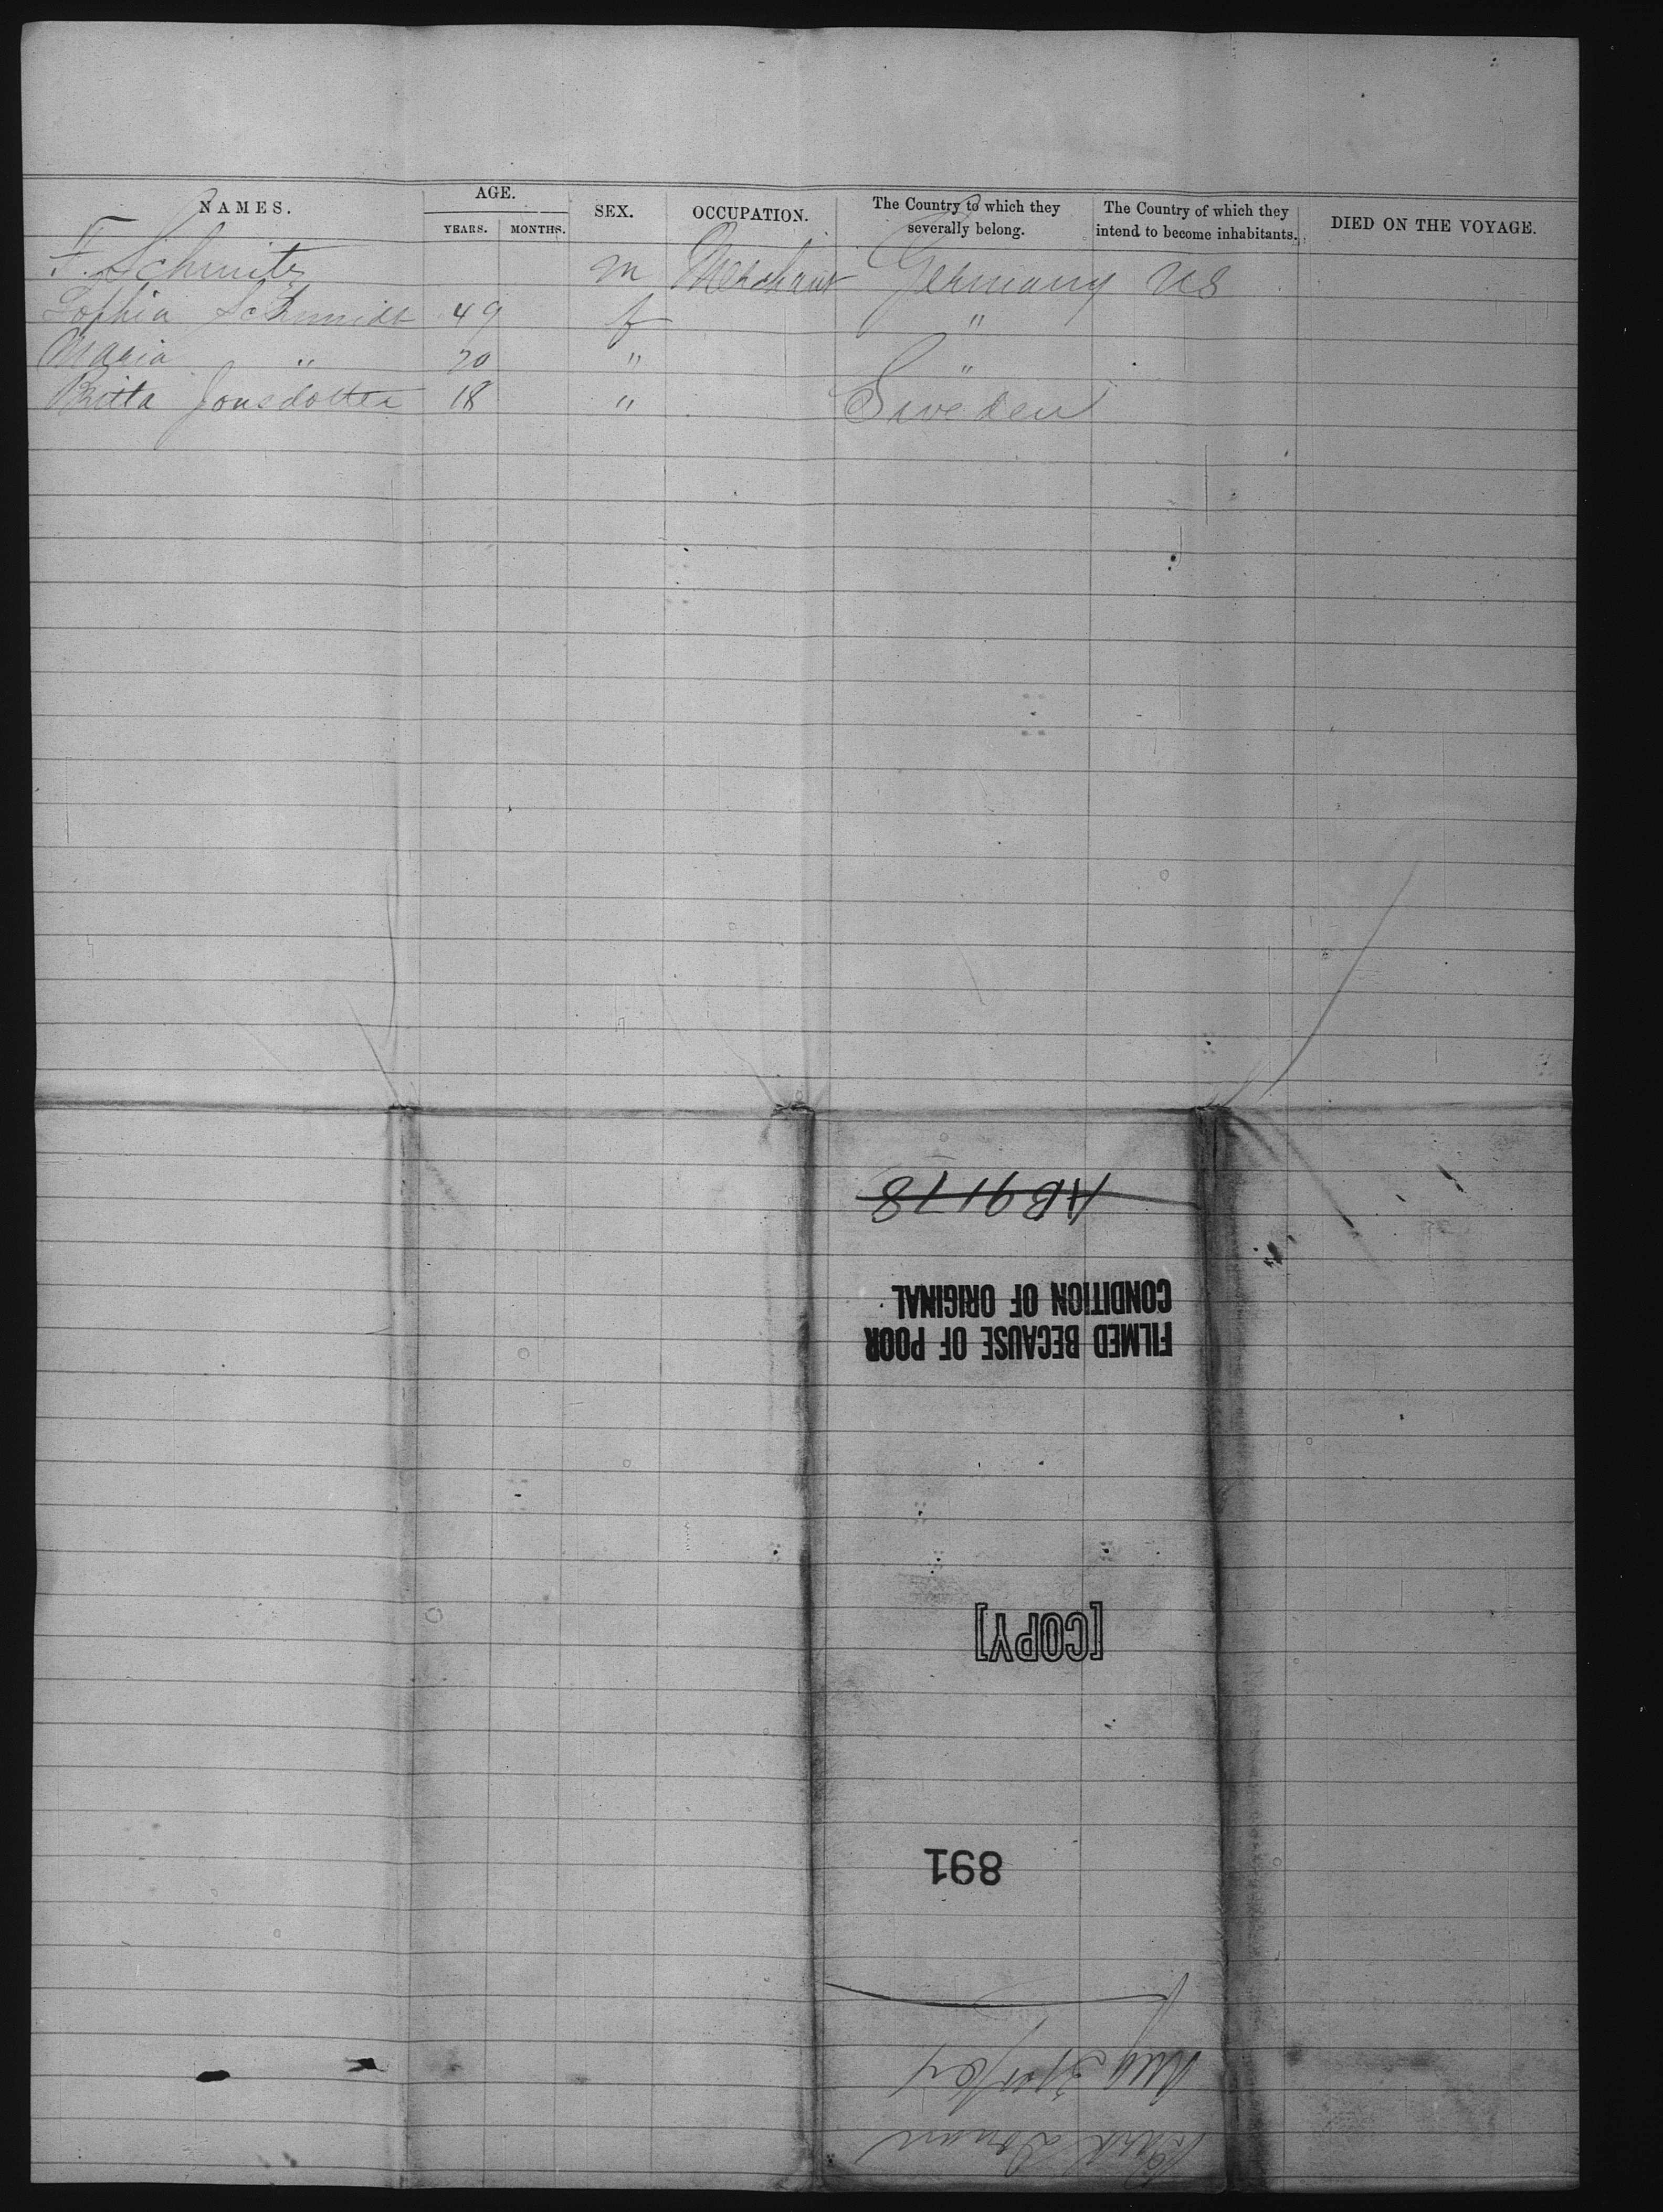 NAMES. AGE. SEX. OCCUPATION. The Country to which they severally belong. The Country of which they intend to become inhabitants. DIED ON THE VOYAGE.
YEARS. MONTHS.
F. Schmitz m Merchant Germany US
Sophia Schmidt 49 f "
Maria " 20 " "
Britta Jonsdotter 18 " Sweden
AB9178
FILMED BECAUSE OF POOR
CONDITION OF ORIGINAL
[COPY]
891
Aug 31st/64
Bark